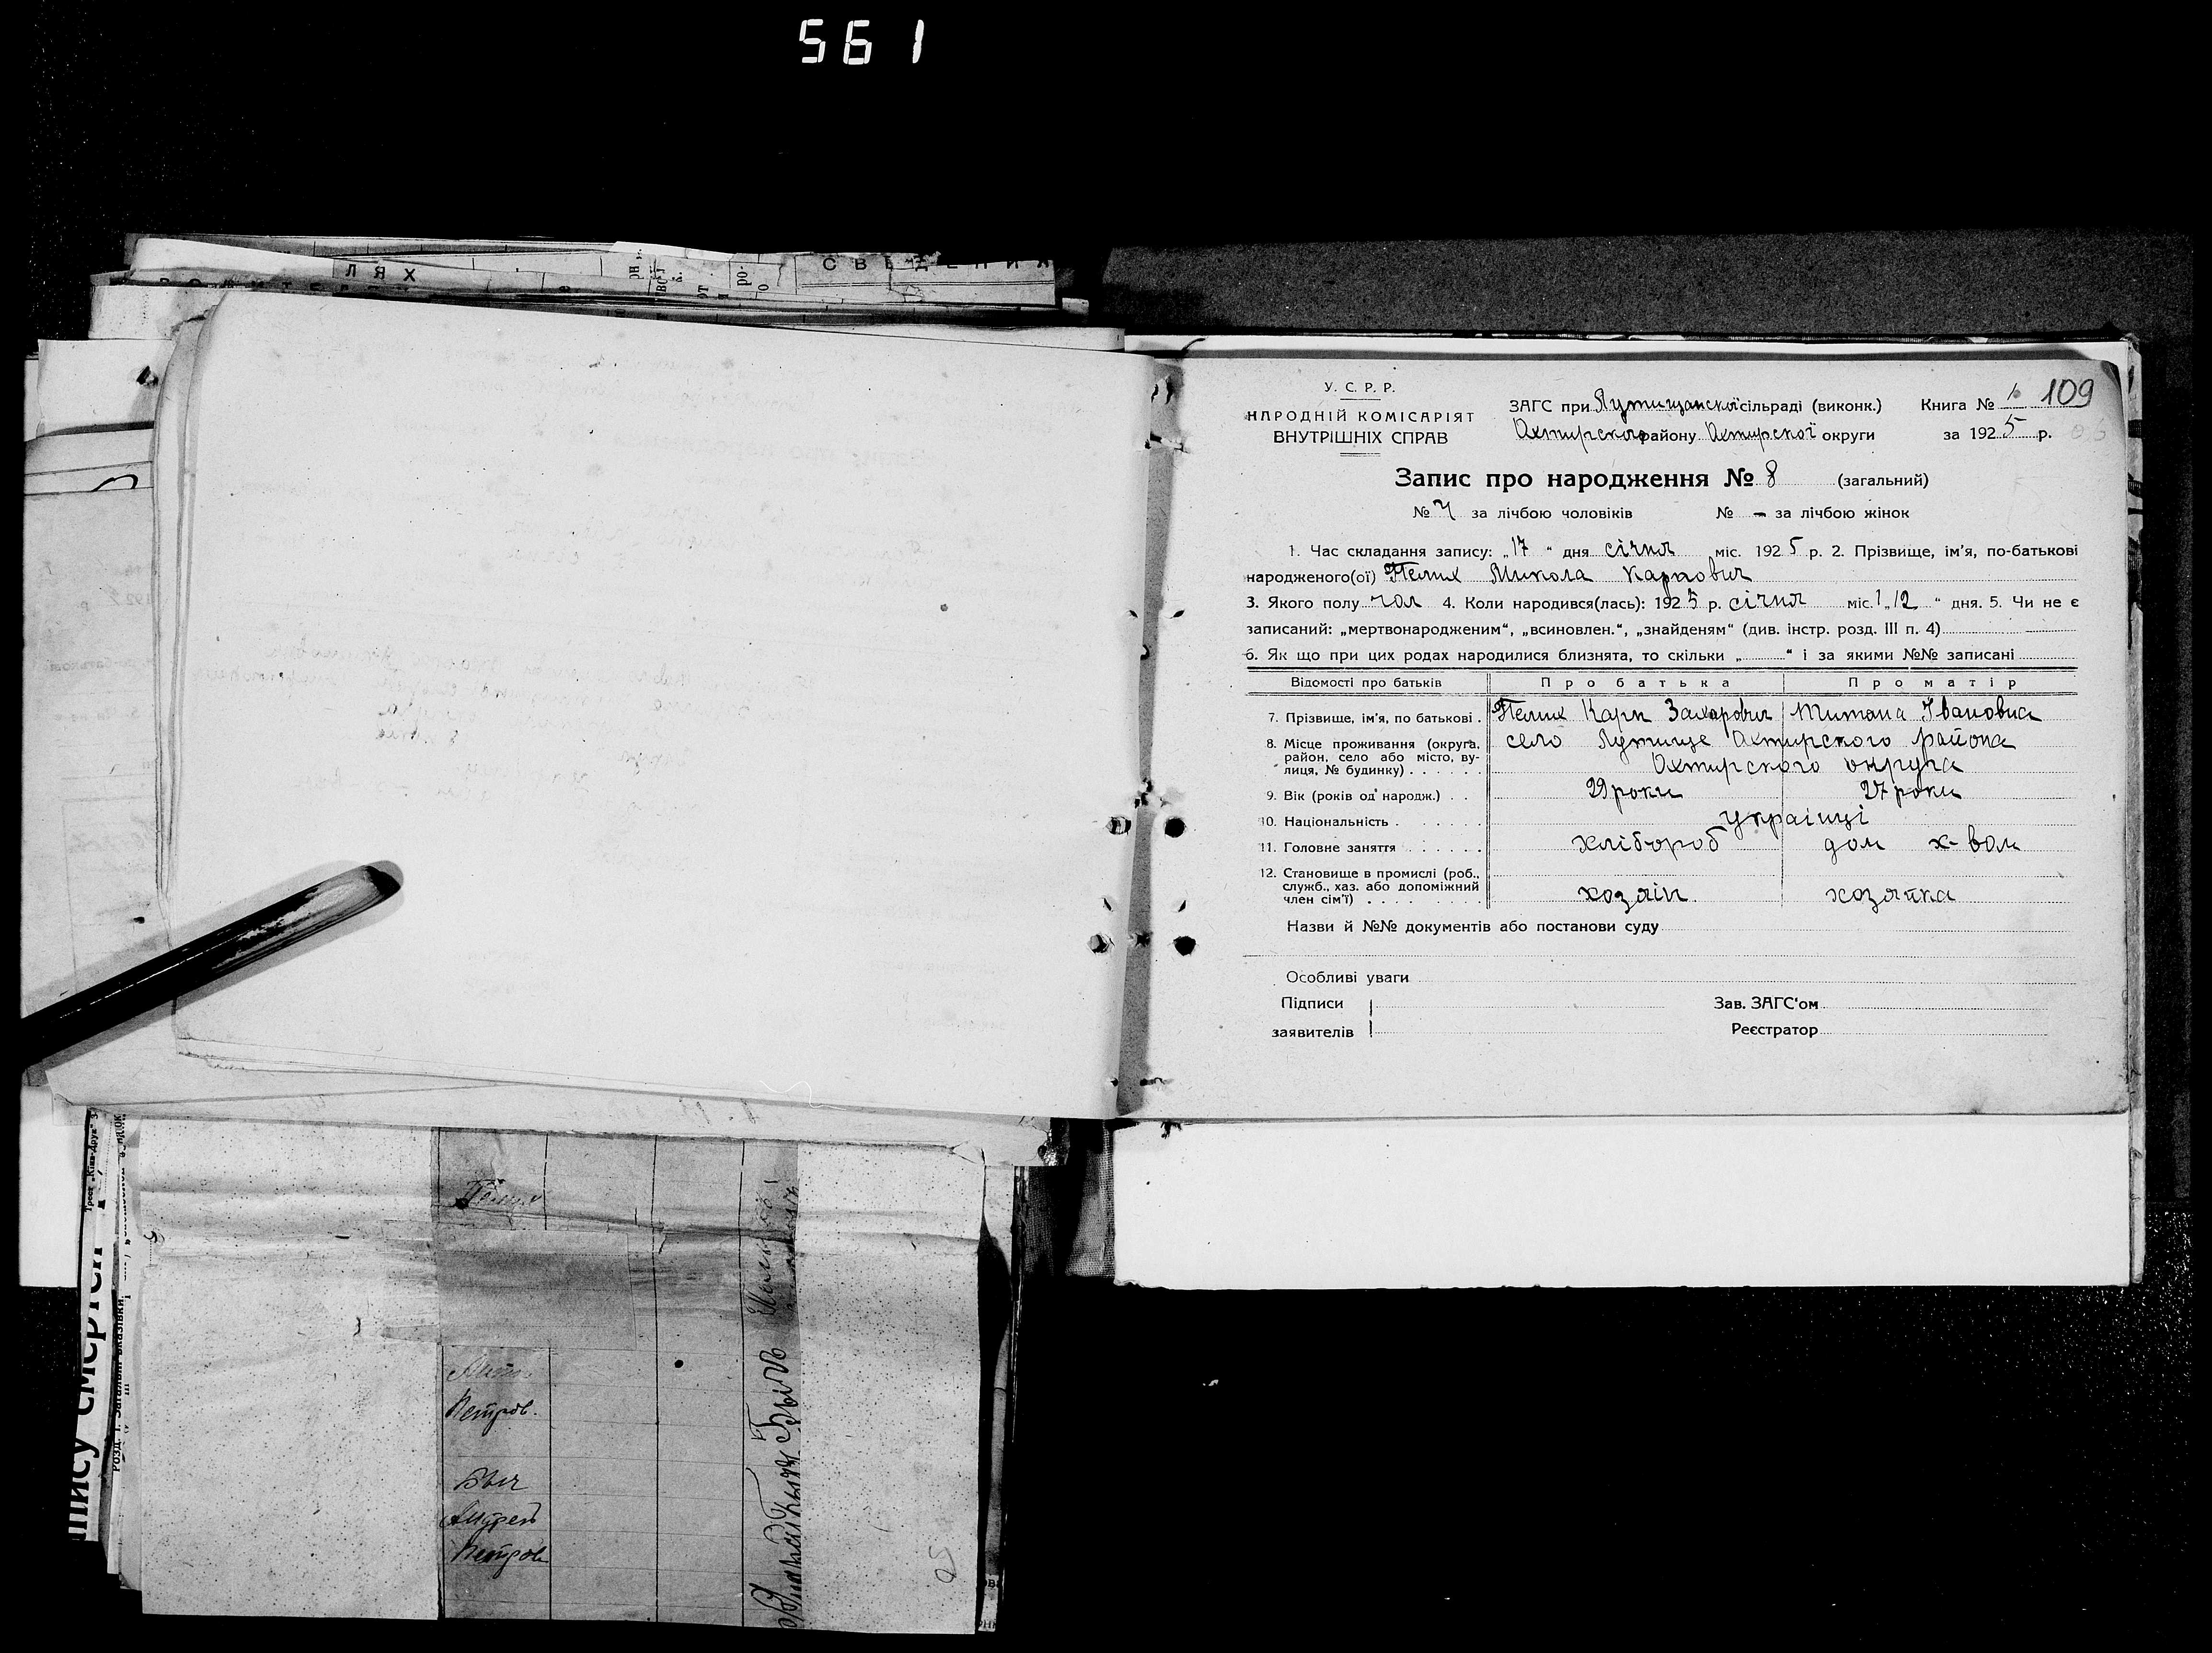 561
ЛЯХ
У. С. Р. Р.
НАРОДНІЙ КОМІСАРІЯТ
ВНУТРІШНІХ СПРАВ
ЗАГС при Лутищанскої сільраді (виконк.)
Охтирского району Охтирскої округи
Книга № 1 109
за 1925 р.
Запис про народження № 8 (загальний)
№ 7 за лічбою чоловіків № – за лічбою жінок
1. Час складання запису: „17“ дня січня міс. 1925 р. 2. Прізвище, ім’я, по-батькові
народженого(ої) Пелих Микола Карпович
3. Якого полу чол 4. Коли народився(лась): 1925 р. січня міс. „12“ дня. 5. Чи не є
записаний: „мертвонародженим“, „всиновлен.“, „знайденям“ (див. інстр. розд. III п. 4)
6. Як що при цих родах народилися близнята, то скільки „ “ і за якими №№ записані
Відомості про батьків Про батька Про матір
7. Прізвище, ім’я, по батькові . Пелих Карп Захарович Титана Івановна
8. Місце проживання (округа, село Лутище Охтирского района
район, село або місто, ву-
лиця, № будинку) . . . . . . Охтирского округа
9. Вік (років од народж.) . . 29 роки 27 роки
10. Національність . . . . . . українці
11. Головне заняття . . . . . . хлібороб дом х-вом
12. Становище в промислі (роб.,
служб., хаз. або допоміжний
член сім’ї) . . . . . . . . хозяін хозяйка
Назви й №№ документів або постанови суду
Особливі уваги
Підписи Зав. ЗАГС‘ом
заявителів Реєстратор
Пелих
Петров.
Андрей
Петров